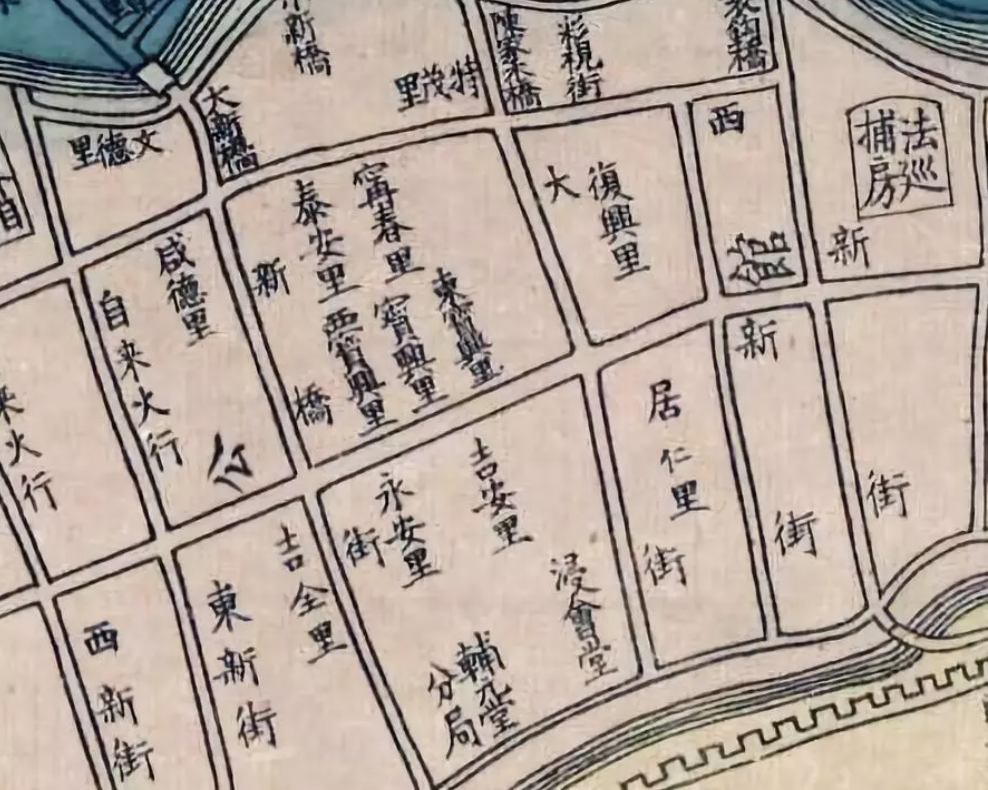 小新橋
特茂里
陳家木橋
彩視街
大新橋
文德里
法巡捕房
西
新
街
復興里
大
新
街
甯春里
泰安里
東寶興里
寶興里
西寶興里
新
橋
街
咸德里
自来火行
来火行
公
館
居仁里
街
吉安里
永安里
浸會堂
輔元堂分局
吉全里
東新街
西新街